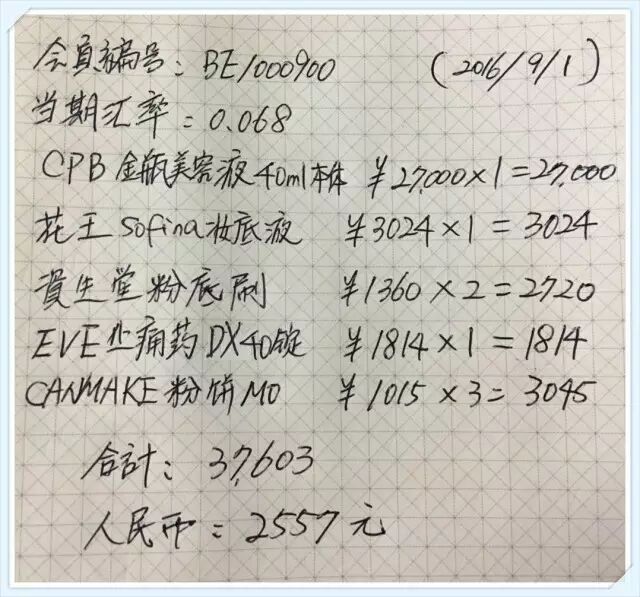 会員编号：BE1000900 (2016/9/1)
当期汇率：0.068
CPB 金瓶美容液 40ml本体 ¥27,000×1=27,000
花王 Sofina妆底液 ¥3024×1=3024
資生堂粉底刷 ¥1360×2=2720
EVE止痛药 DX40锭 ¥1814×1=1814
CANMAKE粉饼MO ¥1015×3=3045
合計：37,603
人民币：2557元